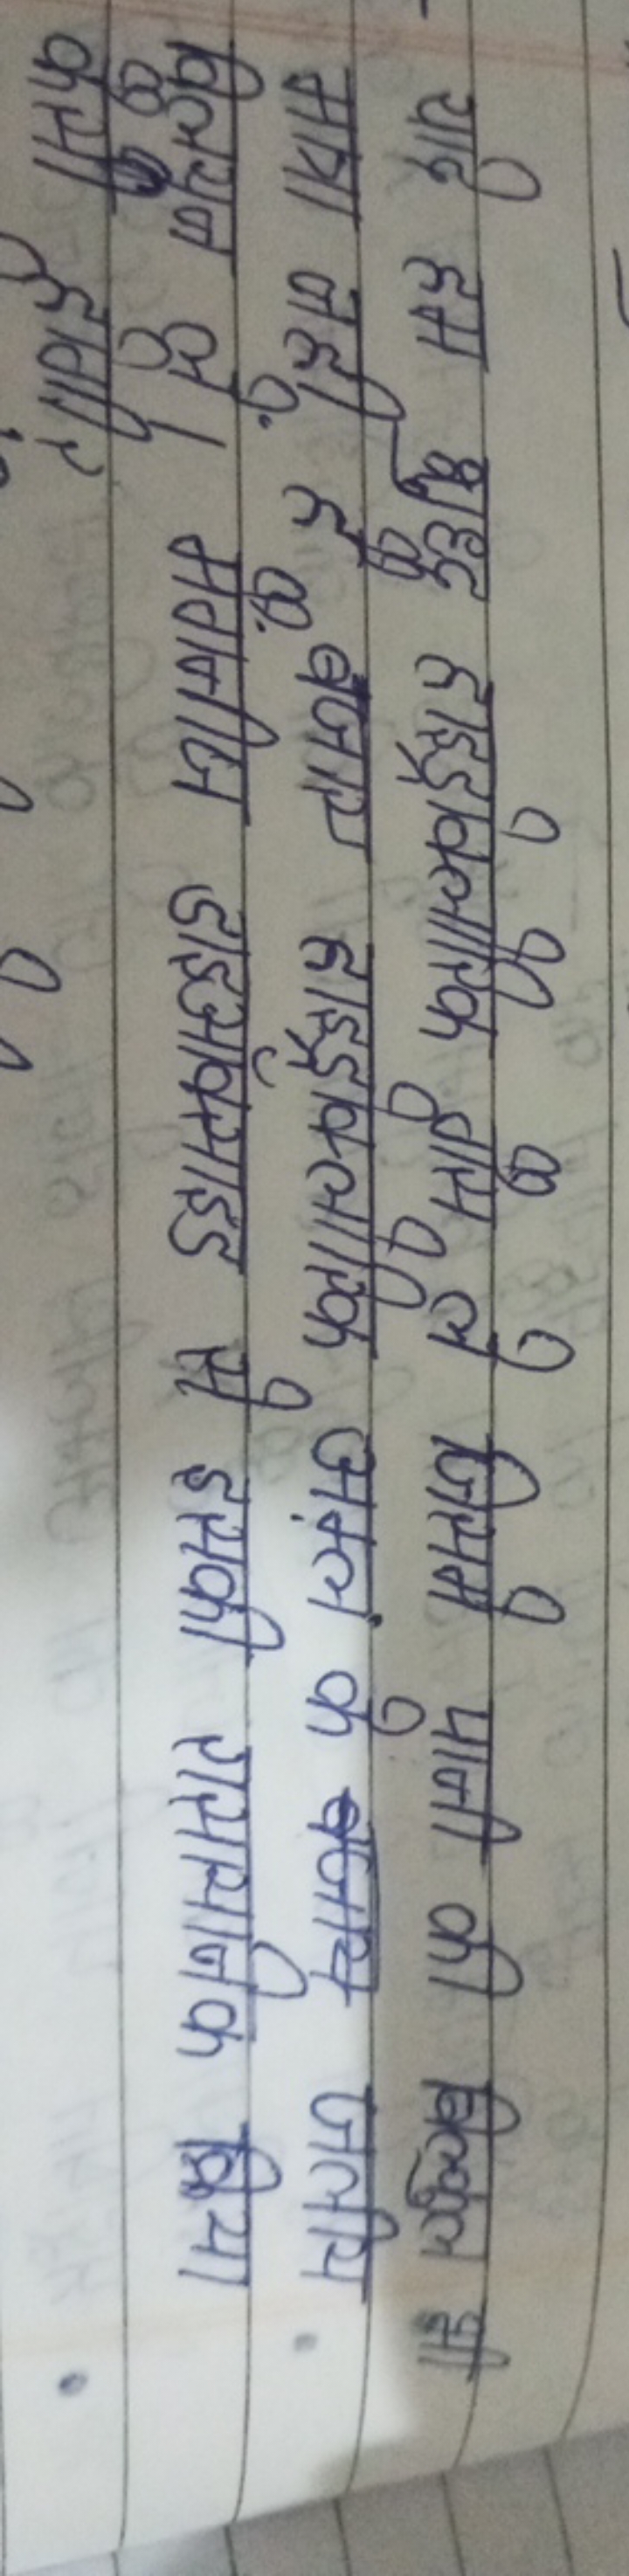 यदि हम शुद्ध हाइड्रोक्लोरिक गैस ले जिसमे पानी की बिल्कुल भी
मात्रा नहीं है बजाए हाइड्रोक्लोरिक अम्ल के बजाय जलीय
विलयन के। मैंगनीज डाइऑक्साइड से इसकी रासायनिक क्रिया
कैसी होगी